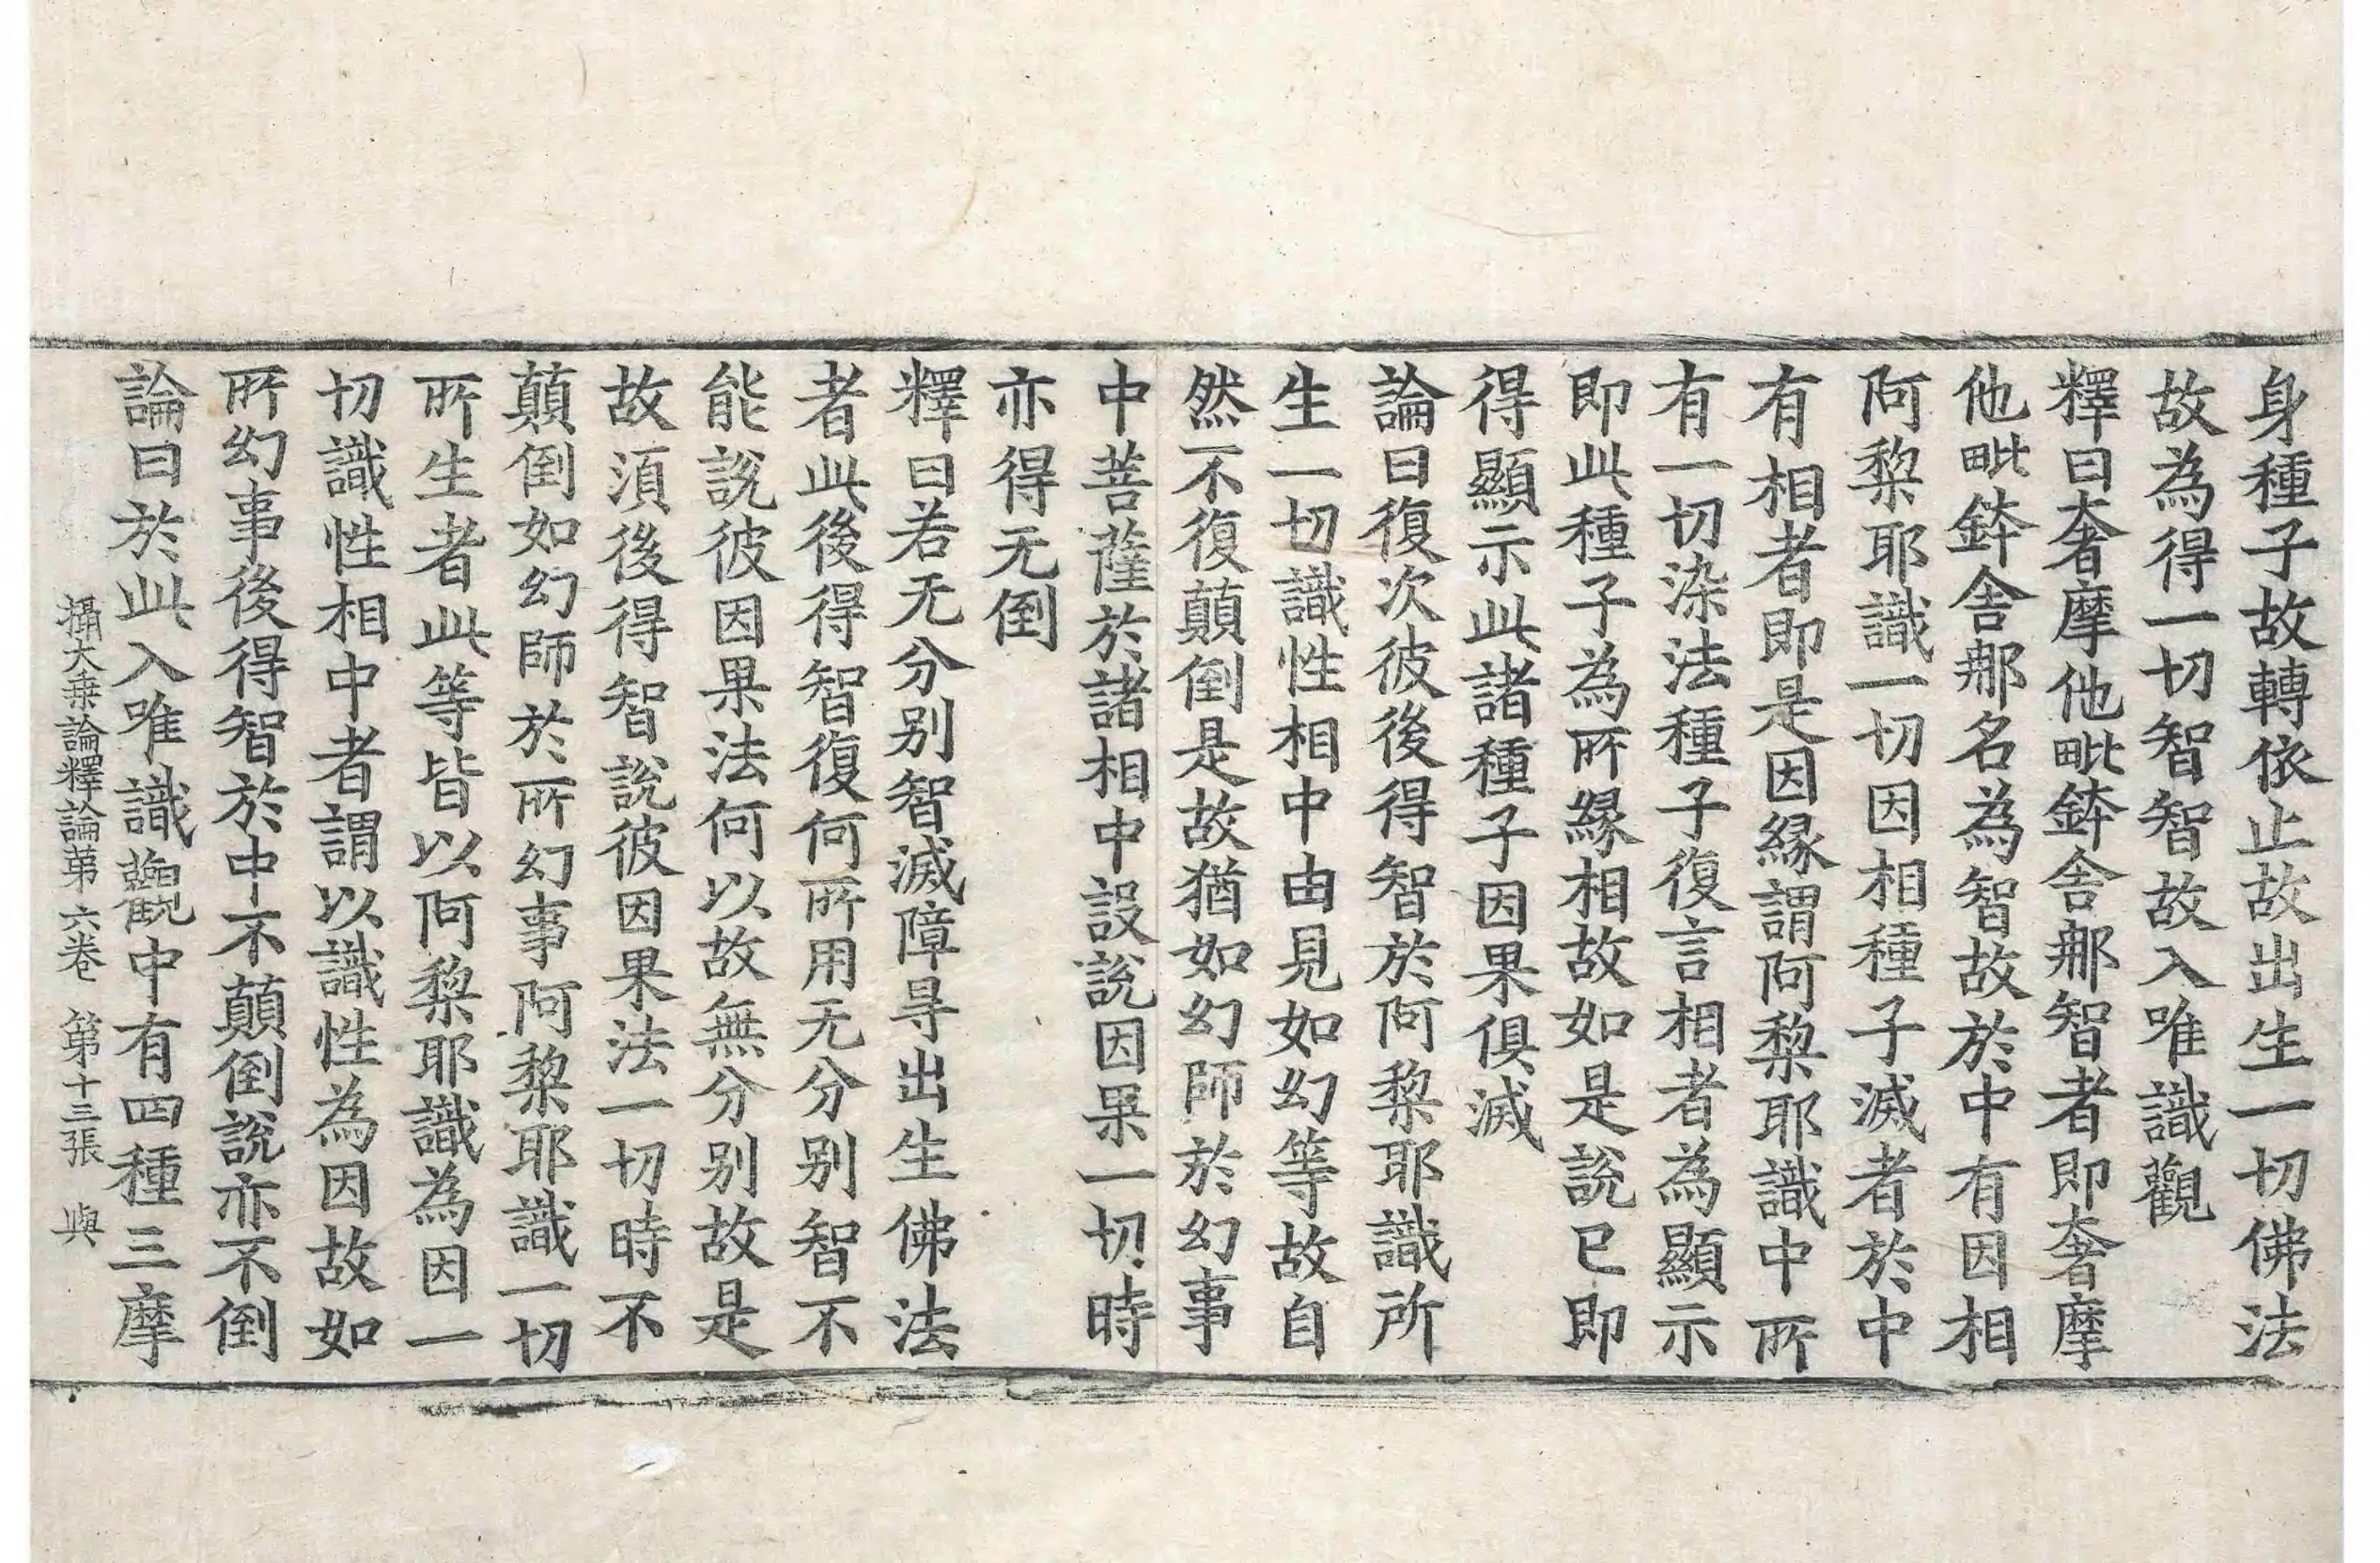 身種子故轉依止故出生一切佛法
故為得一切智智故入唯識觀
釋曰奢摩他毗鉢舍那智者即奢摩
他毗鉢舍那名為智故於中有因相
阿棃耶識一切因相種子滅者於中
有相者即是因緣謂阿棃耶識中所
有一切染法種子復言相者為顯示
即此種子為所緣相故如是說已即
得顯示此諸種子因果俱滅
論曰復次彼後得智於阿棃耶識所
生一切識性相中由見如幻等故自
然不復顛倒是故猶如幻師於幻事
中菩薩於諸相中設說因果一切時
亦得无倒
釋曰若无分别智滅障㝵出生佛法
者此後得智復何所用无分别智不
能說彼因果法何以故無分别故是
故須後得智說彼因果法一切時不
顛倒如幻師於所幻事阿棃耶識一切
所生者此等皆以阿棃耶識為因一
切識性相中者謂以識性為因故如
所幻事後得智於中不顛倒說亦不倒
論曰於此入唯識觀中有四種三摩
攝大乗論釋論第六卷 第十三張 與